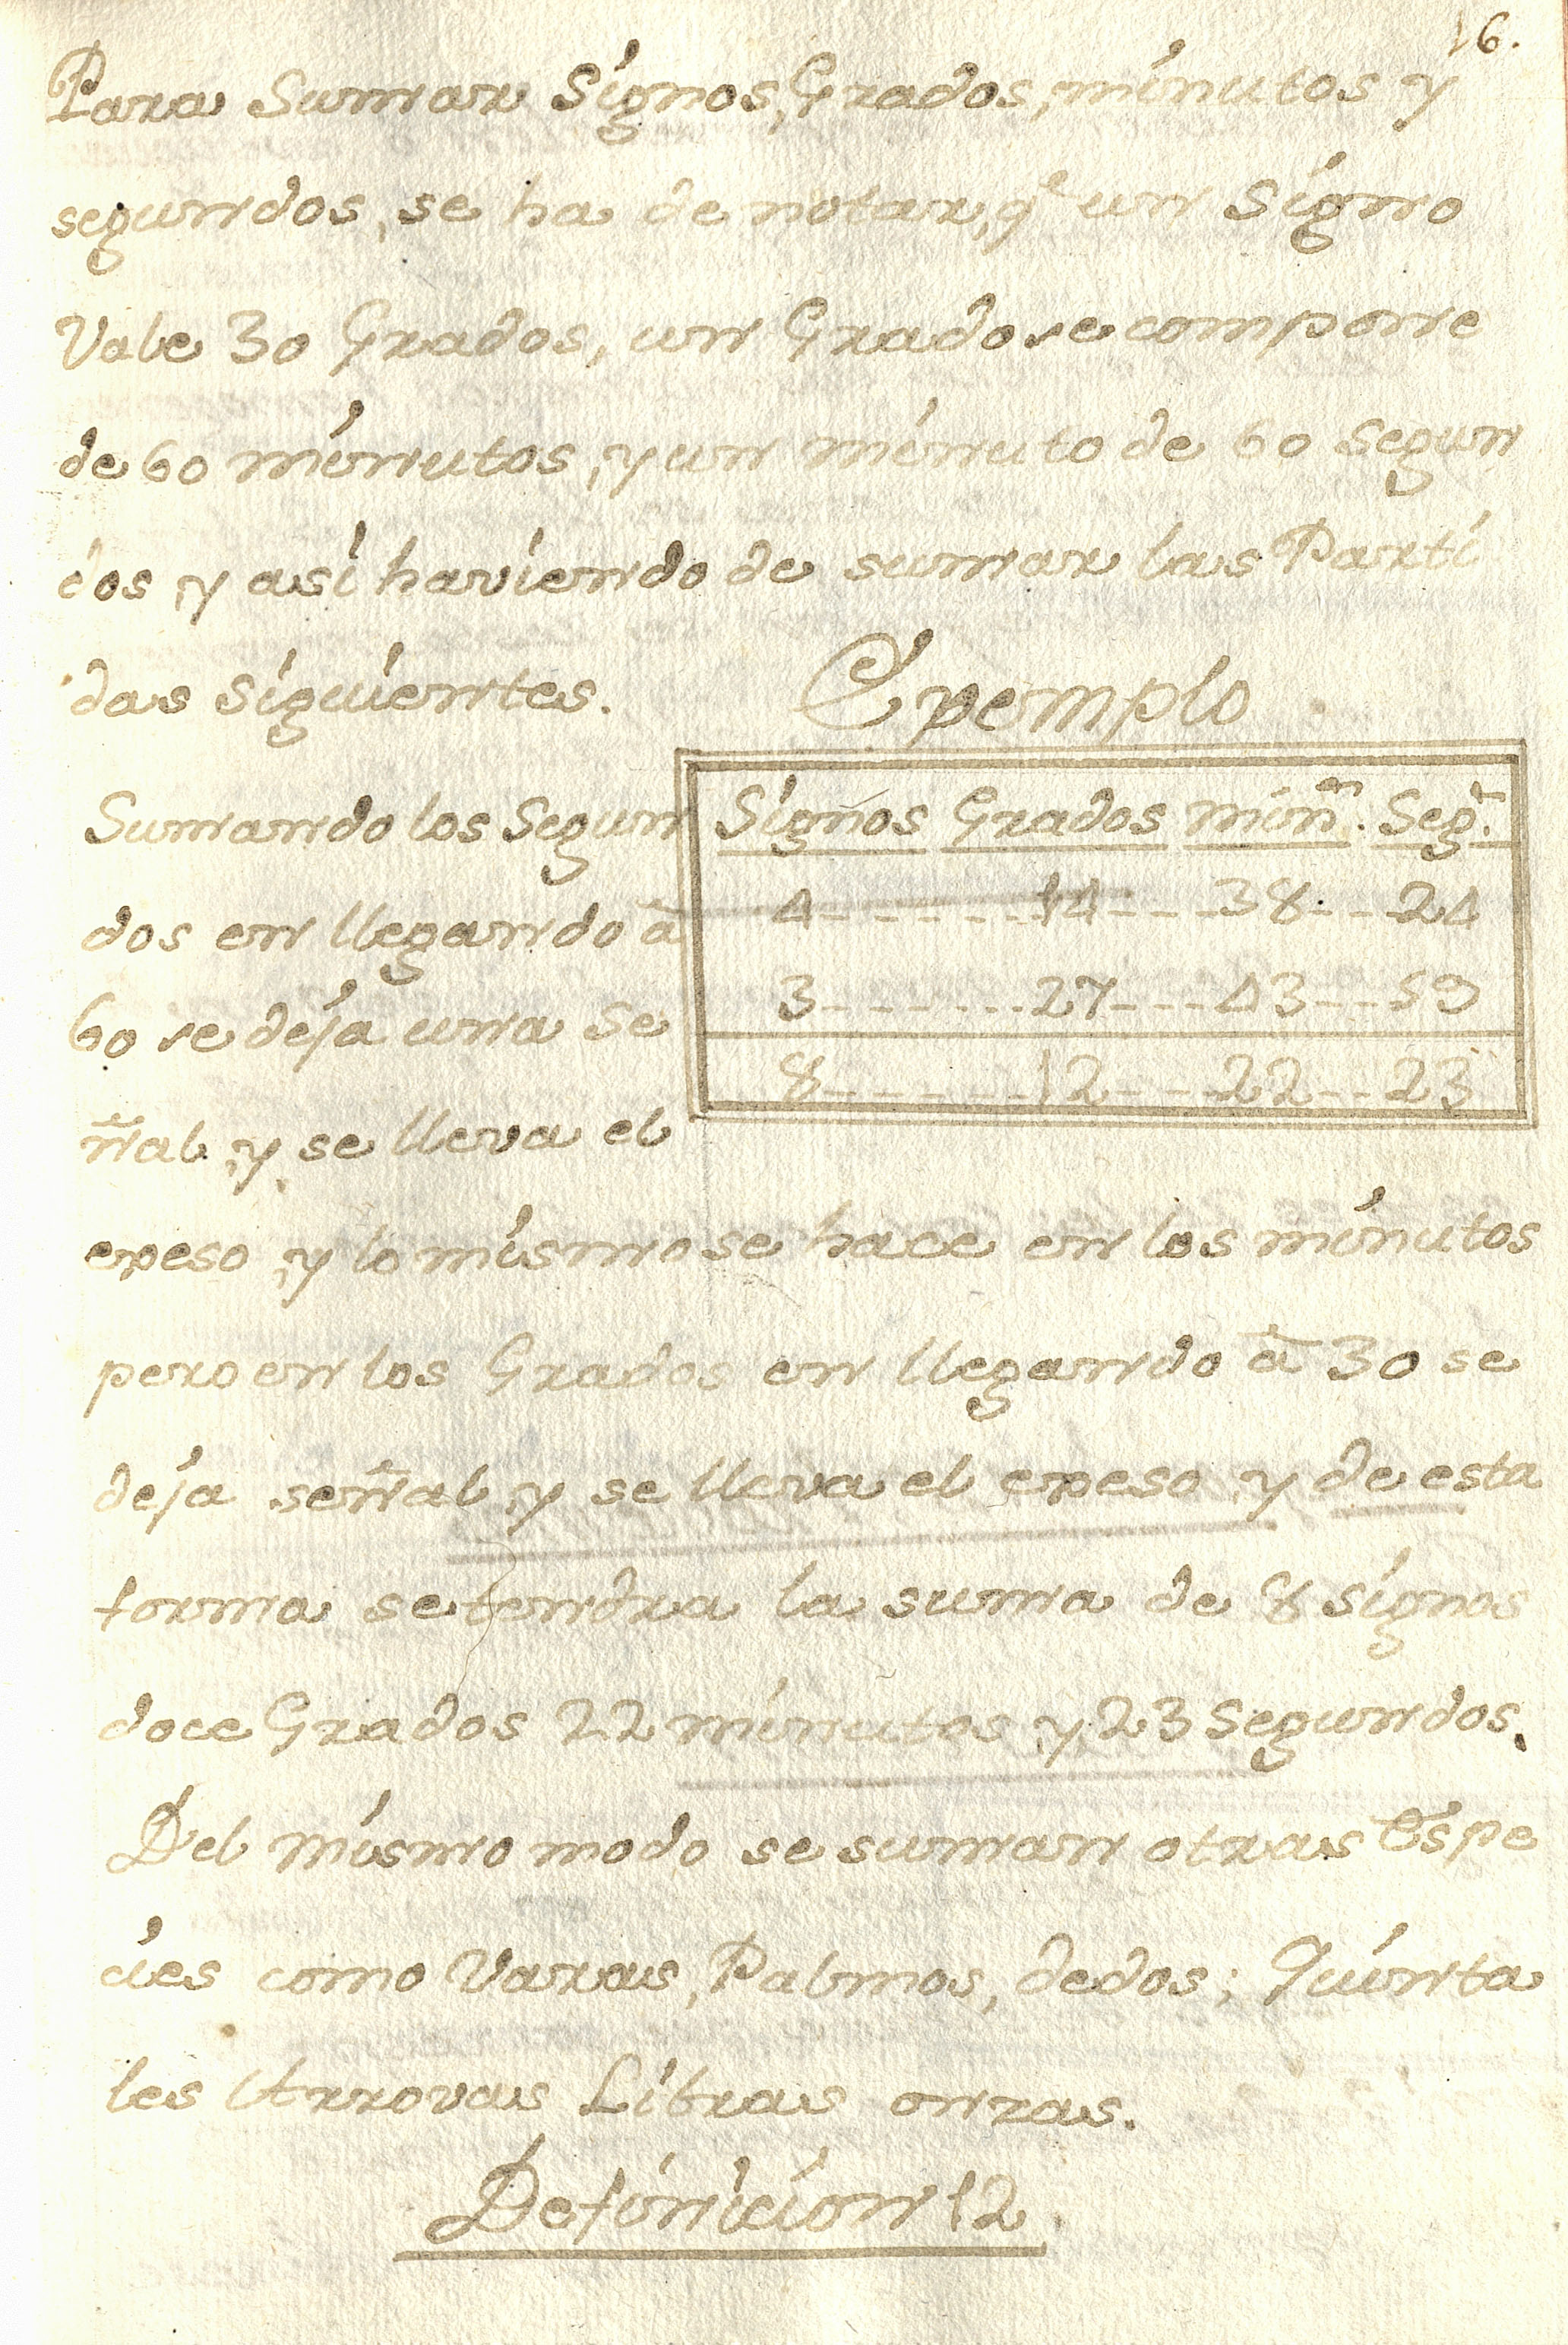 16.
Para Sumar Signos, Grados, minutos y
segundos, se ha de notar, q.^e un Signo
Vale 30 Grados, un Grado se compone
de 60 minutos, y un minuto de 60 segun
dos, y asi haviendo de sumar las Parti
das siguientes.
Exemplo
Sumando los Segun
dos en llegando à
60 se deja una se
ñal, y se lleva el
Signos Grados min. Seg.
4 - - - - - - - 14 - - - 38 - - - 24
3 - - - - - - - 27 - - - 43 - - - 59
8 - - - - - - - 12 - - - 22 - - - 23
exeso, y lo mismo se hace en los minutos
pero en los Grados en llegando à 30 se
deja señal, y se lleva el exeso, y de esta
forma se tendra la suma de 8 signos
doce Grados 22 minutos, y 23 Segundos.
Del mismo modo se suman otras Espe
cies como Varas, Palmos, dedos; Quinta
les Arrovas Libras onzas.
Definicion 12.